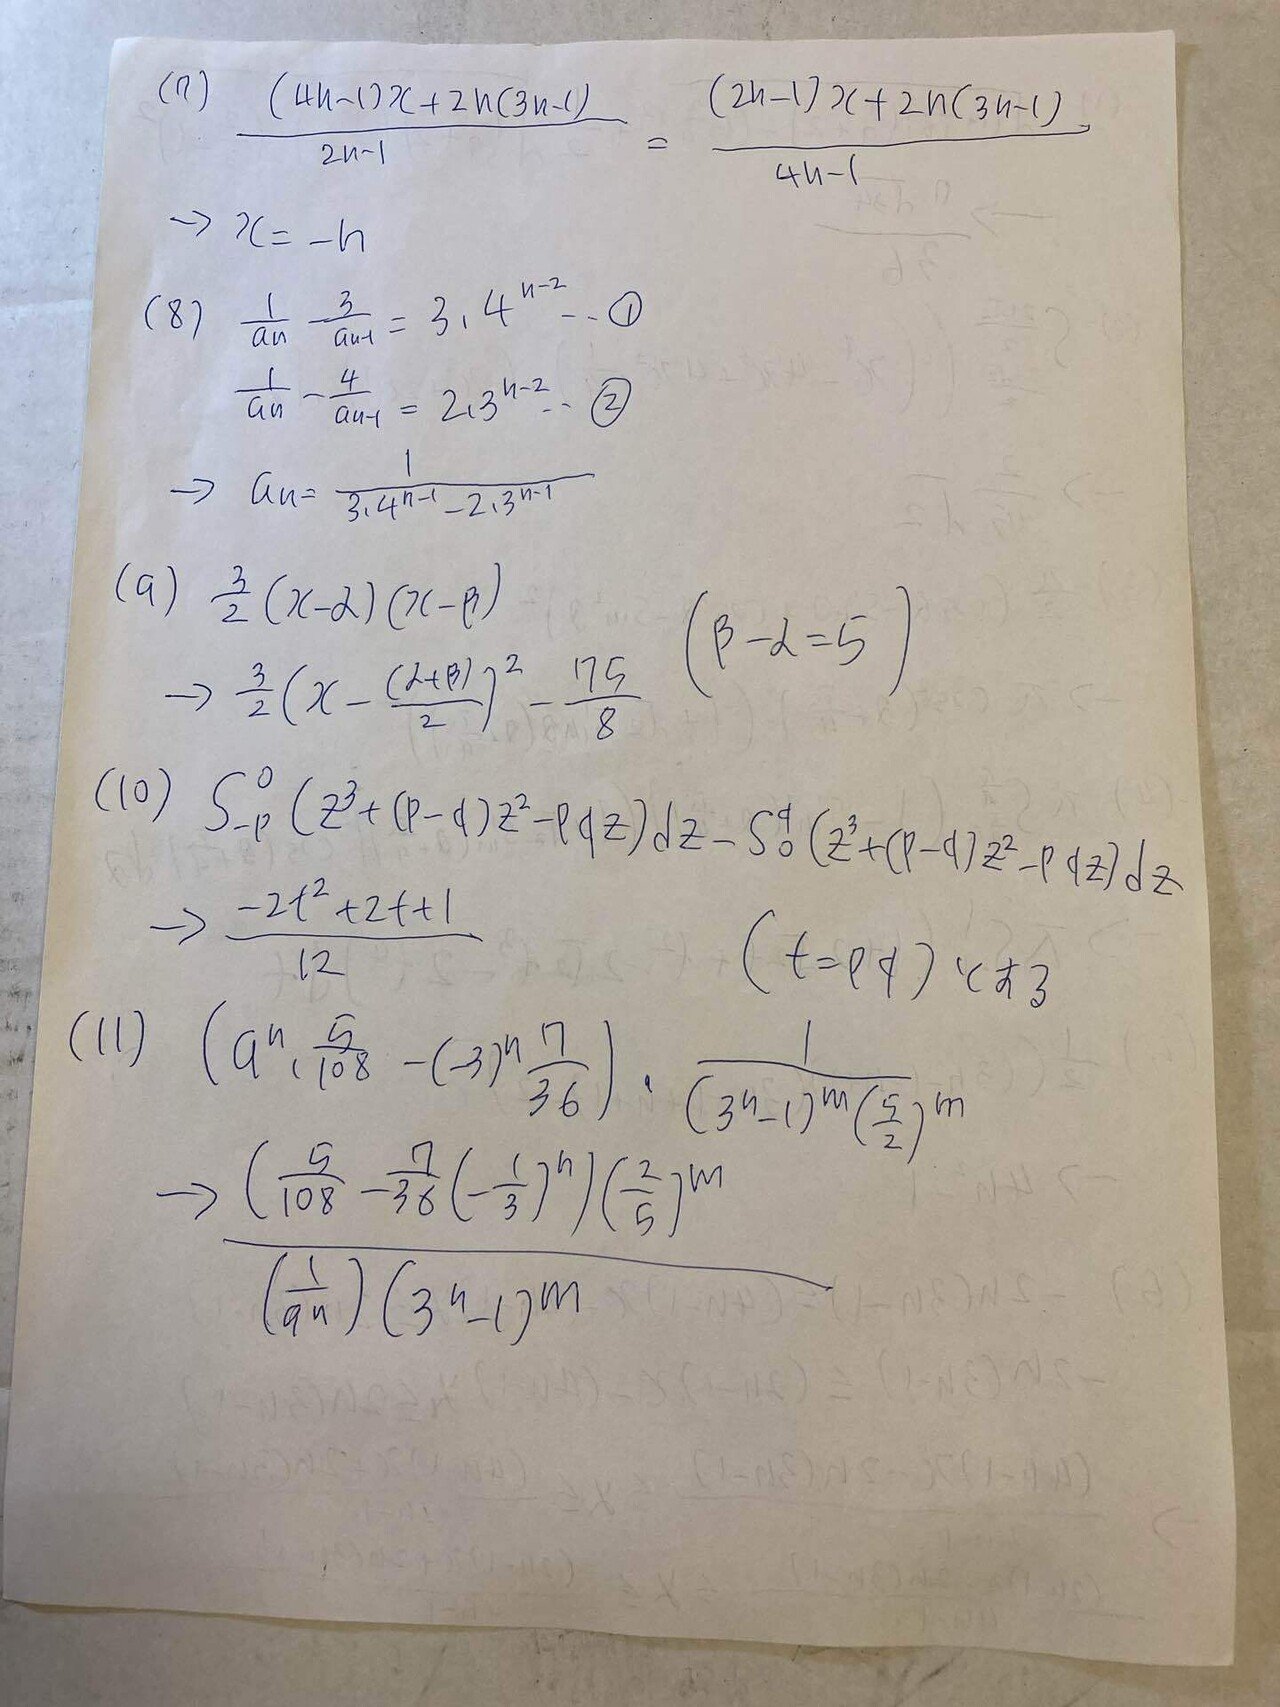 (7) \frac{(4n-1)x+2n(3n-1)}{2n-1} = \frac{(2n-1)x+2n(3n-1)}{4n-1}
→ x=-n
(8) \frac{1}{an} - \frac{3}{an-1} = 3·4^{n-2} … ①
\frac{1}{an} - \frac{4}{an-1} = 2·3^{n-2} … ②
→ an = \frac{1}{3·4^{n-1}-2·3^{n-1}}
(9) \frac{3}{2}(x-α)(x-β)
(β-α=5)
→ \frac{3}{2}(x-\frac{(α+β)}{2})^2 - \frac{75}{8}
(10) ∫_{-p}^{0}(z^3+(p-q)z^2-pqz)dz - ∫_{0}^{q}(z^3+(p-q)z^2-pqz)dz
→ \frac{-2t^2+2t+1}{12}
(t=pq) とする
(11) (9^n·\frac{5}{108} - (-3)^n \frac{7}{36}) · \frac{1}{(3^n-1)^m(\frac{5}{2})^m}
→ \frac{(\frac{5}{108}-\frac{7}{36}(-\frac{1}{3})^n)(\frac{2}{5})^m}{(\frac{1}{9^n})(3^n-1)^m}